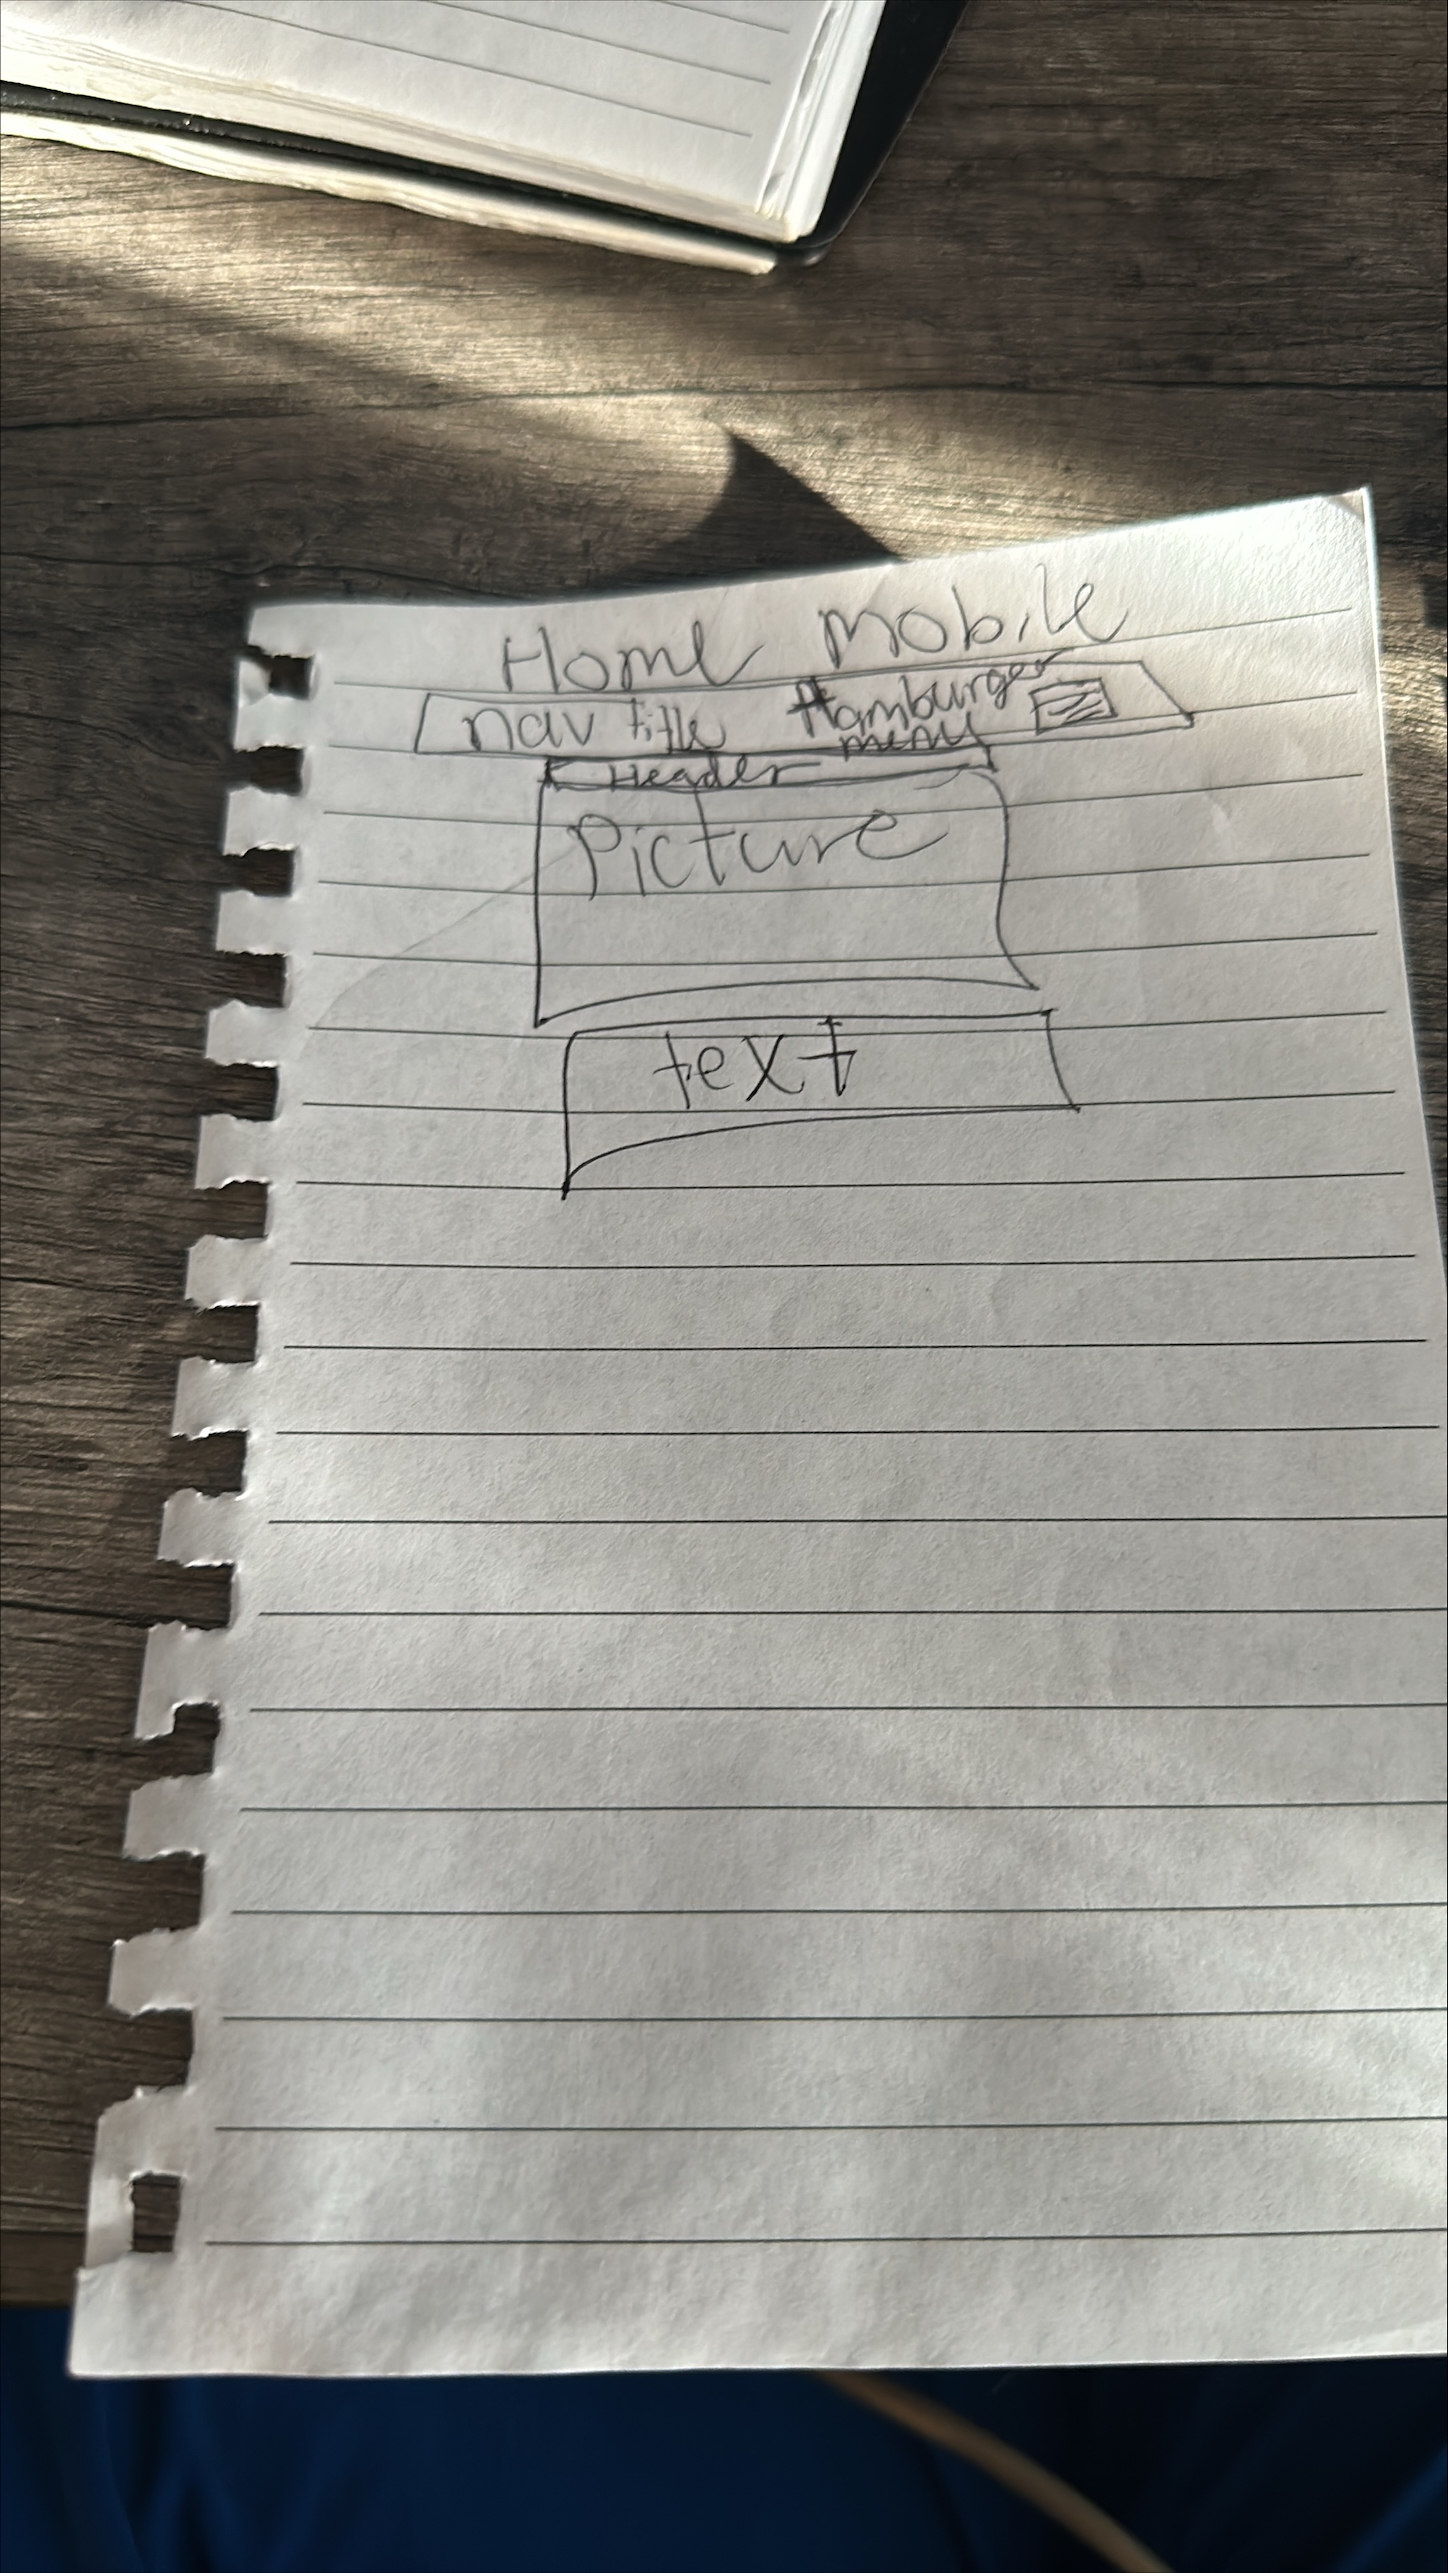 Home Mobile
nav title Hamburger
menu
Header
Picture
text